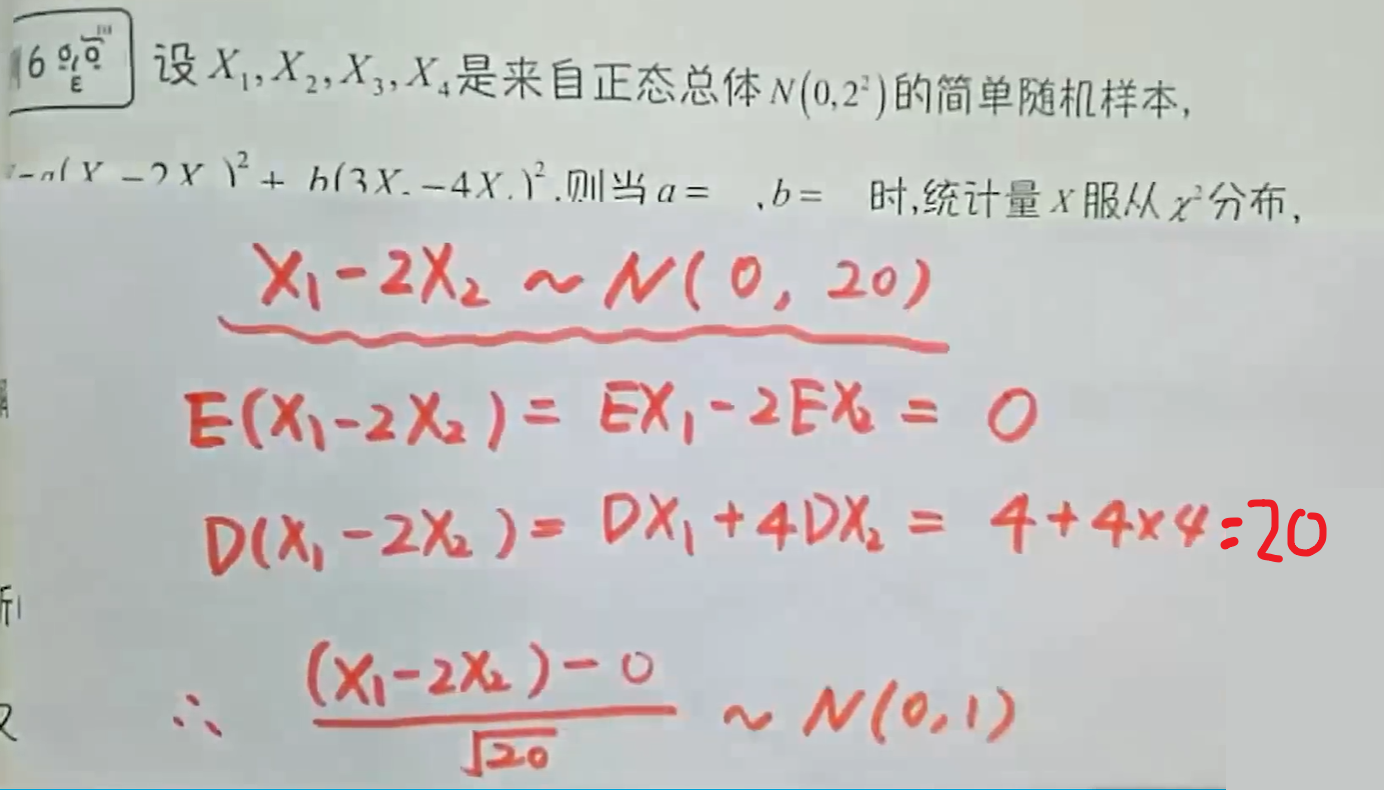 6 设 X₁, X₂, X₃, X₄ 是来自正态总体 N(0,2²) 的简单随机样本,
(X -2X )²+ b(3X -4X )².则当 a= ,b= 时,统计量 X 服从 χ² 分布,
X₁-2X₂ ~ N(0, 20)
E(X₁-2X₂)= EX₁-2EX₂ = 0
D(X₁-2X₂)= DX₁+4DX₂ = 4+4×4=20
∴ (X₁-2X₂)-0 / √20 ~ N(0,1)